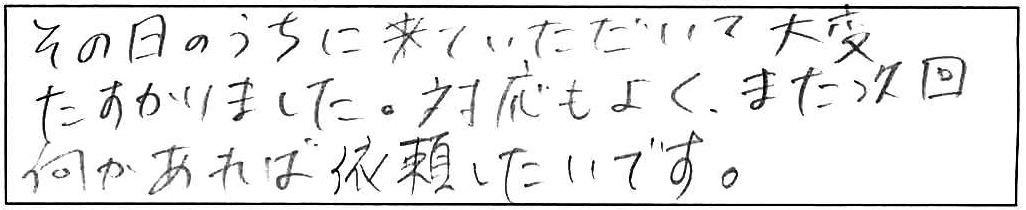 その日のうちに来ていただいて大変
たすかりました。対応もよく、また次回
何かあれば依頼したいです。